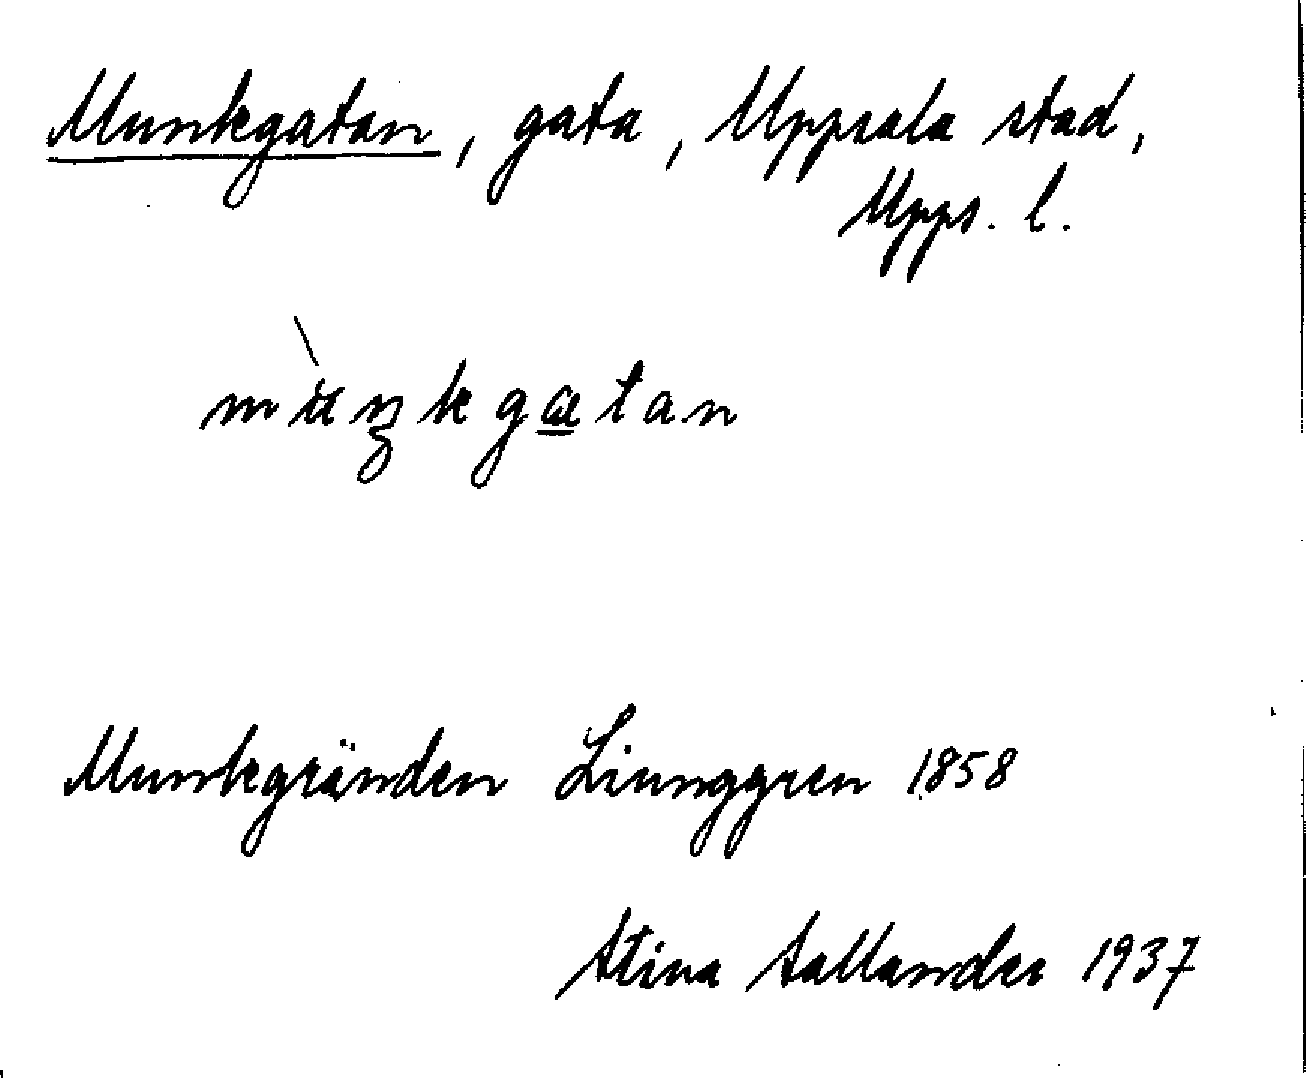 Munkgatan, gata, Uppsala stad,
Upps. l.
mùŋkgatan
Munkgränden Liunggren 1858
Stina Sallander 1937